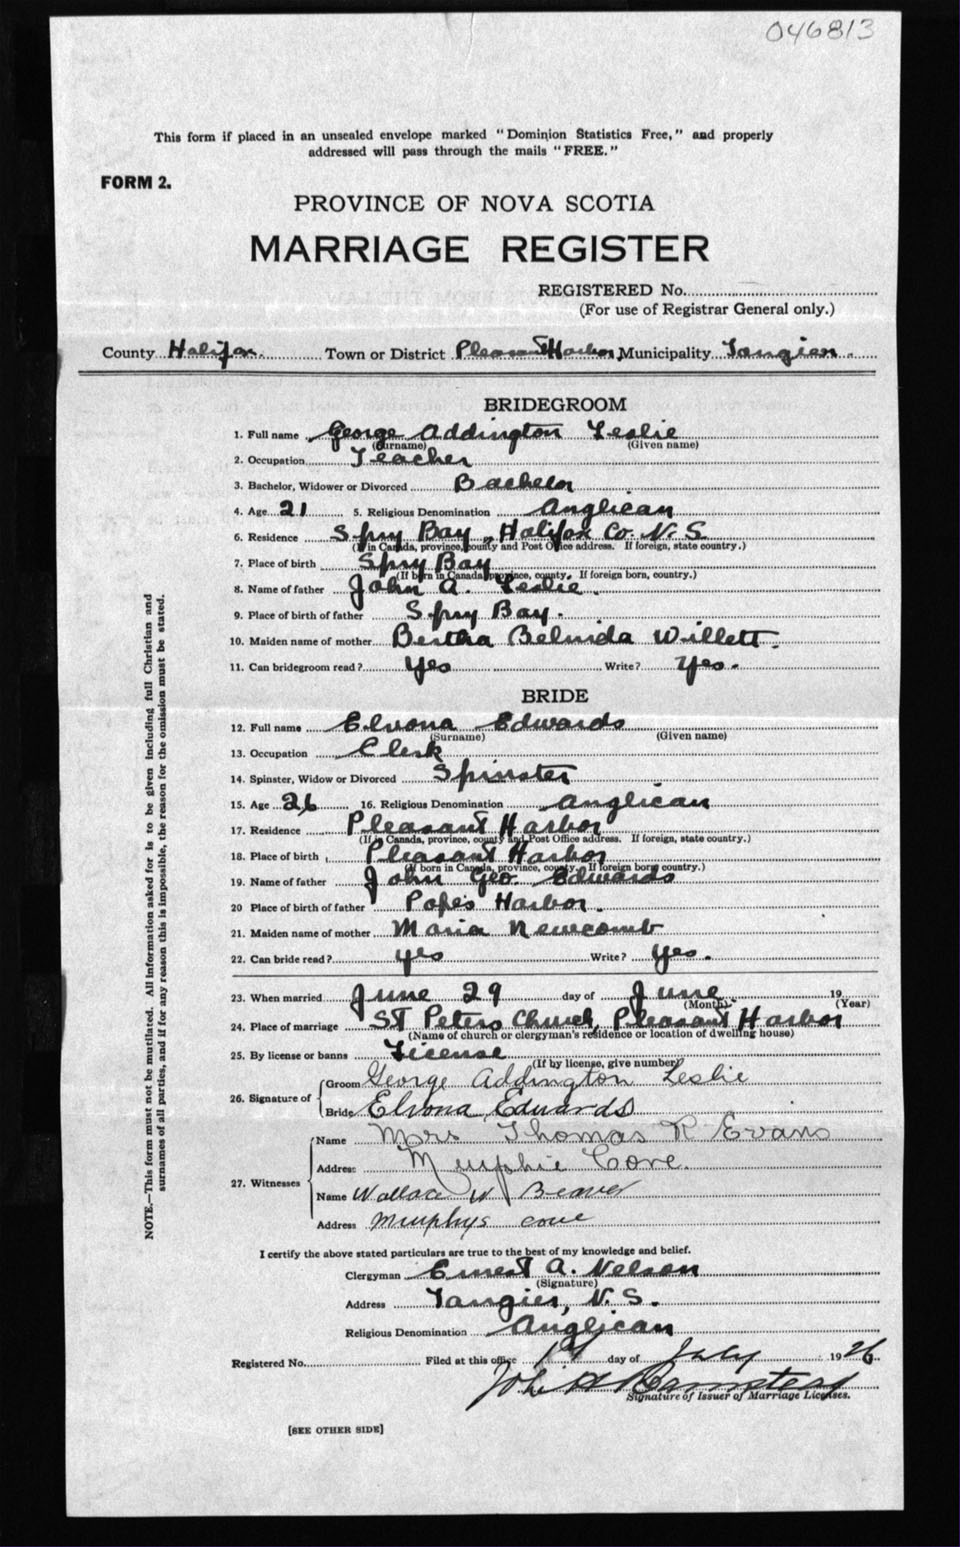 046813
This form if placed in an unsealed envelope marked "Dominion Statistics Free," and properly
addressed will pass through the mails "FREE."
FORM 2.
PROVINCE OF NOVA SCOTIA
MARRIAGE REGISTER
REGISTERED No.
(For use of Registrar General only.)
County Halifax Town or District Pleasant Harbor Municipality Tangier.
BRIDEGROOM
1. Full name George Addington Leslie
(Surname) (Given name)
2. Occupation Teacher
3. Bachelor, Widower or Divorced Bachelor
4. Age 21 5. Religious Denomination Anglican
6. Residence Spry Bay, Halifax Co. N. S.
(If in Canada, province, county and Post Office address. If foreign, state country.)
7. Place of birth Spry Bay
(If born in Canada, province, county. If foreign born, country.)
8. Name of father John A. Leslie.
9. Place of birth of father Spry Bay.
10. Maiden name of mother Bertha Belnida Willett.
11. Can bridegroom read? Yes Write? Yes.
BRIDE
12. Full name Elvona Edwards
(Surname) (Given name)
13. Occupation Clerk
14. Spinster, Widow or Divorced Spinster
15. Age 26 16. Religious Denomination Anglican
17. Residence Pleasant Harbor
(If in Canada, province, county and Post Office address. If foreign, state country.)
18. Place of birth Pleasant Harbor
(If born in Canada, province, county. If foreign born country.)
19. Name of father John Geo. Edwards
20 Place of birth of father Pope's Harbor.
21. Maiden name of mother Maria Newcomb
22. Can bride read? yes Write? Yes.
23. When married June 29 day of June 19
(Month) (Year)
24. Place of marriage St Peters Church, Pleasant Harbor
(Name of church or clergyman's residence or location of dwelling house)
25. By license or banns License
(If by license, give number)
26. Signature of Groom George Addington Leslie
Bride Elvona Edwards
27. Witnesses Name Mrs Thomas R Evans
Address Murphie Cove.
Name Wallace W Beaver
Address Murphys cove
I certify the above stated particulars are true to the best of my knowledge and belief.
Clergyman Ernest A. Nelson
(Signature)
Address Tangier, N. S.
Religious Denomination Anglican
Registered No. Filed at this office 1st day of July 1926.
Signature of Issuer of Marriage Licenses.
[SEE OTHER SIDE]
NOTE.—This form must not be mutilated. All information asked for is to be given including full Christian and
surnames of all parties, and if for any reason this is impossible, the reason for the omission must be stated.